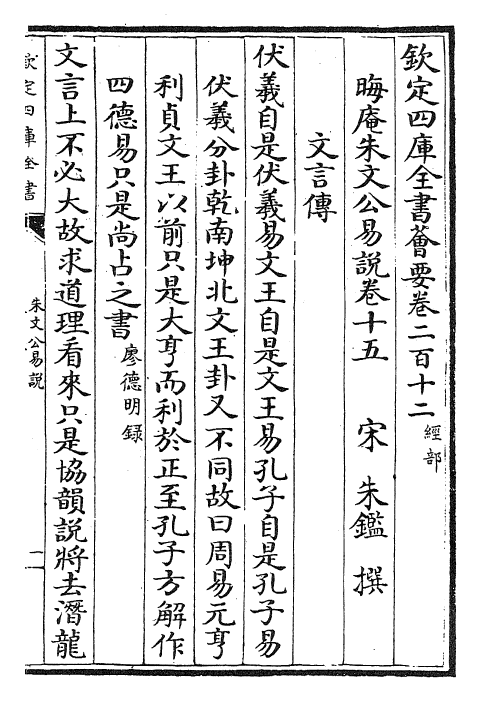 欽定四庫全書薈要卷二百十二經部
晦庵朱文公易説卷十五 宋 朱鑑 撰
文言傳
伏羲自是伏羲易文王自是文王易孔子自是孔子易
伏羲分卦乾南坤北文王卦又不同故曰周易元亨
利貞文王以前只是大亨而利於正至孔子方解作
四德易只是尚占之書廖德明録
文言上不必大故求道理看來只是協韻説將去潛龍
欽定四庫全書
朱文公易説
一